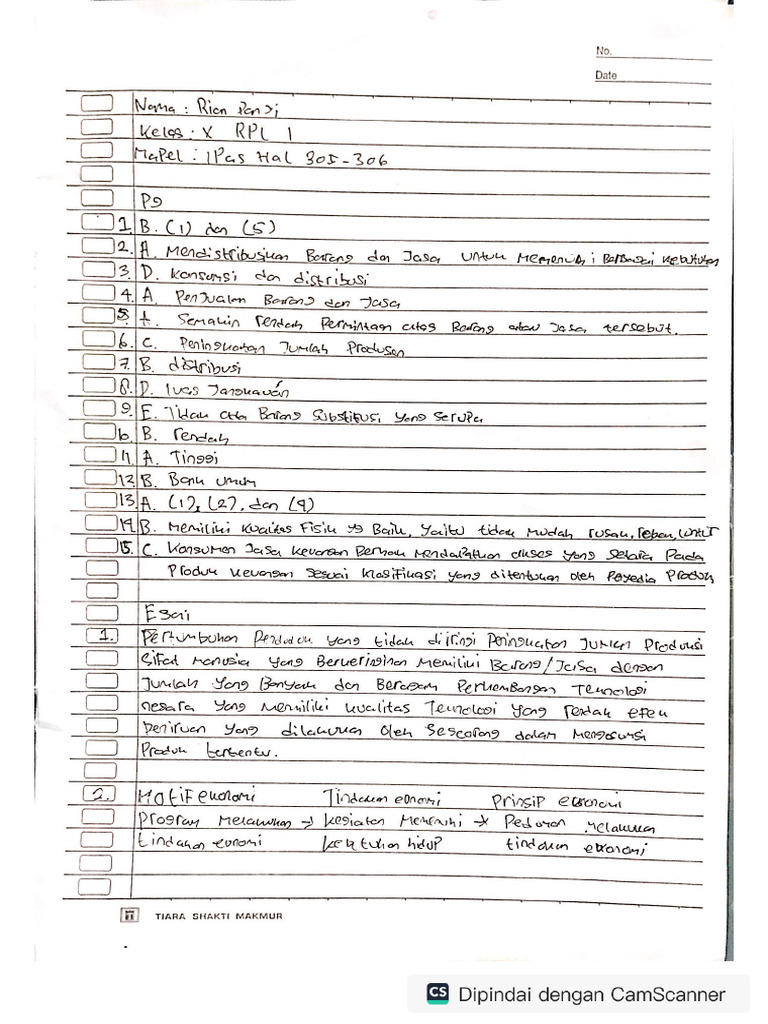 No.
Date
Nama : Rian Panji
Kelas : X RPL 1
Mapel : IPas Hal 305-306
Pg
1. B. (1) dan (5)
2. A. Mendistribusikan Barang dan Jasa untuk memenuhi Berbagai kebutuhan
3. D. Konsumsi dan distribusi
4. A. Penjualan Barang dan Jasa
5. A. Semakin rendah Permintaan atas Barang atau Jasa tersebut.
6. C. Peningkatan Jumlah Produsen
7. B. distribusi
8. D. luas Jangkauan
9. E. Tidak ada Barang Substitusi yang serupa
10. B. rendah
11. A. Tinggi
12. B. Bank umum
13. A. (1), (2), dan (4)
14. B. Memiliki kualitas Fisik yg Baik, yaitu tidak mudah rusak, luntur
15. C. Konsumen Jasa keuangan Berhak Mendapatkan akses yang setara Pada
Produk keuangan sesuai klasifikasi yang ditentukan oleh Penyedia Produk
Esai
1. Pertumbuhan Penduduk yang tidak diiringi Peningkatan Jumlah Produksi
Sifat Manusia yang Berkeinginan Memiliki Barang/Jasa dengan
Jumlah yang Banyak dan Beragam Perkembangan Teknologi
negara yang Memiliki kualitas Teknologi yang rendah efek
Peniruan yang dilakukan Oleh Seseorang dalam Mengonsumsi
Produk tertentu.
2. Motif ekonomi Tindakan ekonomi Prinsip ekonomi
Program Melakukan → kegiatan Memenuhi → Pedoman Melakukan
tindakan ekonomi kebutuhan hidup tindakan ekonomi
TIARA SHAKTI MAKMUR
CS Dipindai dengan CamScanner